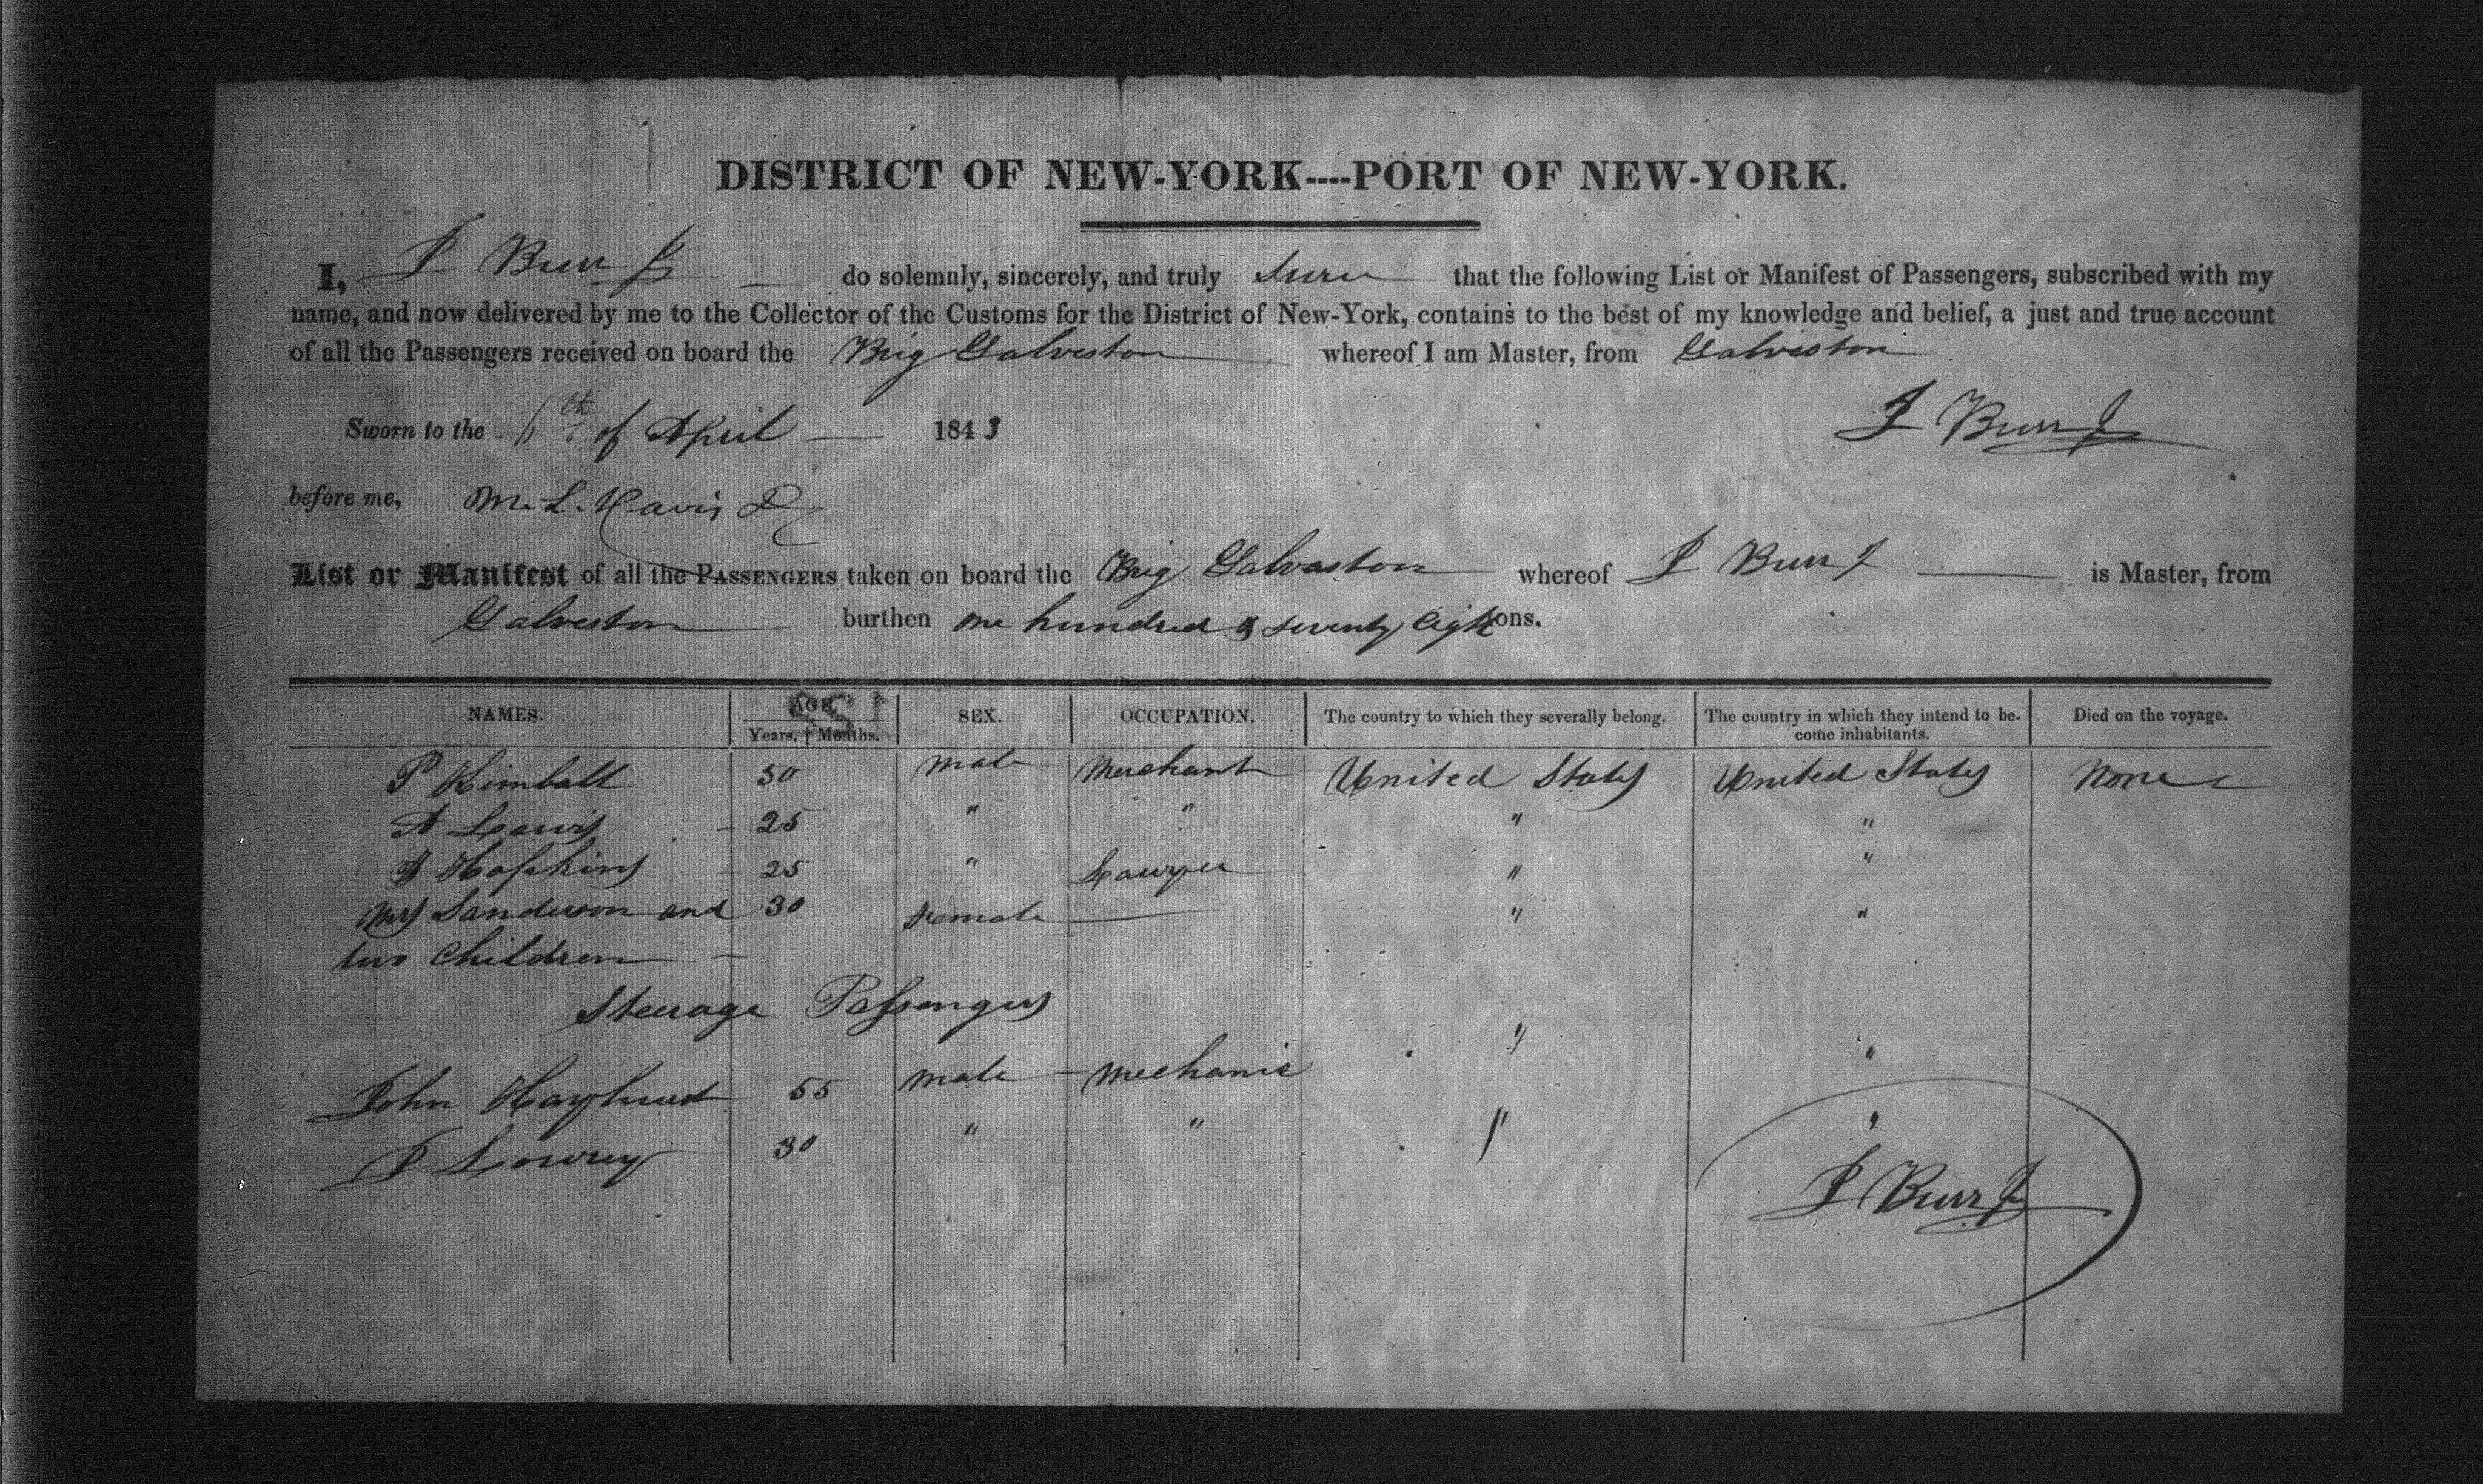 DISTRICT OF NEW-YORK----PORT OF NEW-YORK.
I, J Burr Jr do solemnly, sincerely, and truly that the following List or Manifest of Passengers, subscribed with my
name, and now delivered by me to the Collector of the Customs for the District of New-York, contains to the best of my knowledge and belief, a just and true account
of all the Passengers received on board the Brig Galveston whereof I am Master, from Galveston
Sworn to the of April 1843 J Burr Jr
before me, M. L. Davis
List or Manifest of all the PASSENGERS taken on board the Brig Galveston whereof J Burr Jr is Master, from
Galveston burthen one hundred & seventy Eight tons.
NAMES. AGE. SEX. OCCUPATION. The country to which they severally belong. The country in which they intend to be- Died on the voyage.
Years. Months. come inhabitants.
P Kimball 50 male Merchant United States United States None
A Lewis 25 " " " "
Hopkins 25 " Lawyer " "
Mrs Sanderson and 30 Female " "
two Children
Steerage Passengers
John Hayhurst 55 male mechanic " "
J Lowrey 30 " " " "
J Burr Jr